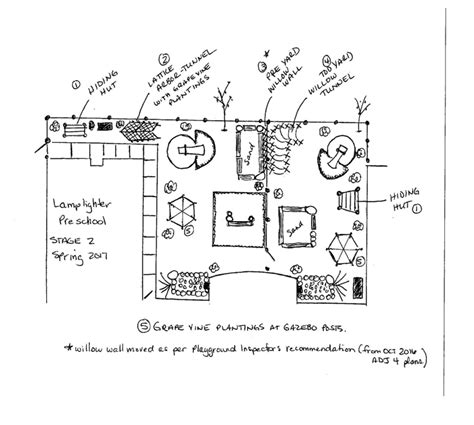 ①
HIDING
HUT
②
LATTICE
ARBOR-TUNNEL
WITH GRAPEVINE
PLANTINGS
③*
PRE YARD
WILLOW
WALL
④
TOD YARD
WILLOW
TUNNEL
Sand
HIDING
HUT ①
Sand
Lamplighter
Preschool
STAGE 2
Spring 2017
⑤ GRAPE VINE PLANTINGS AT GAZEBO POSTS.
* willow wall moved as per Playground Inspectors recommendation (from OCT 2016
ADJ 4 plans)